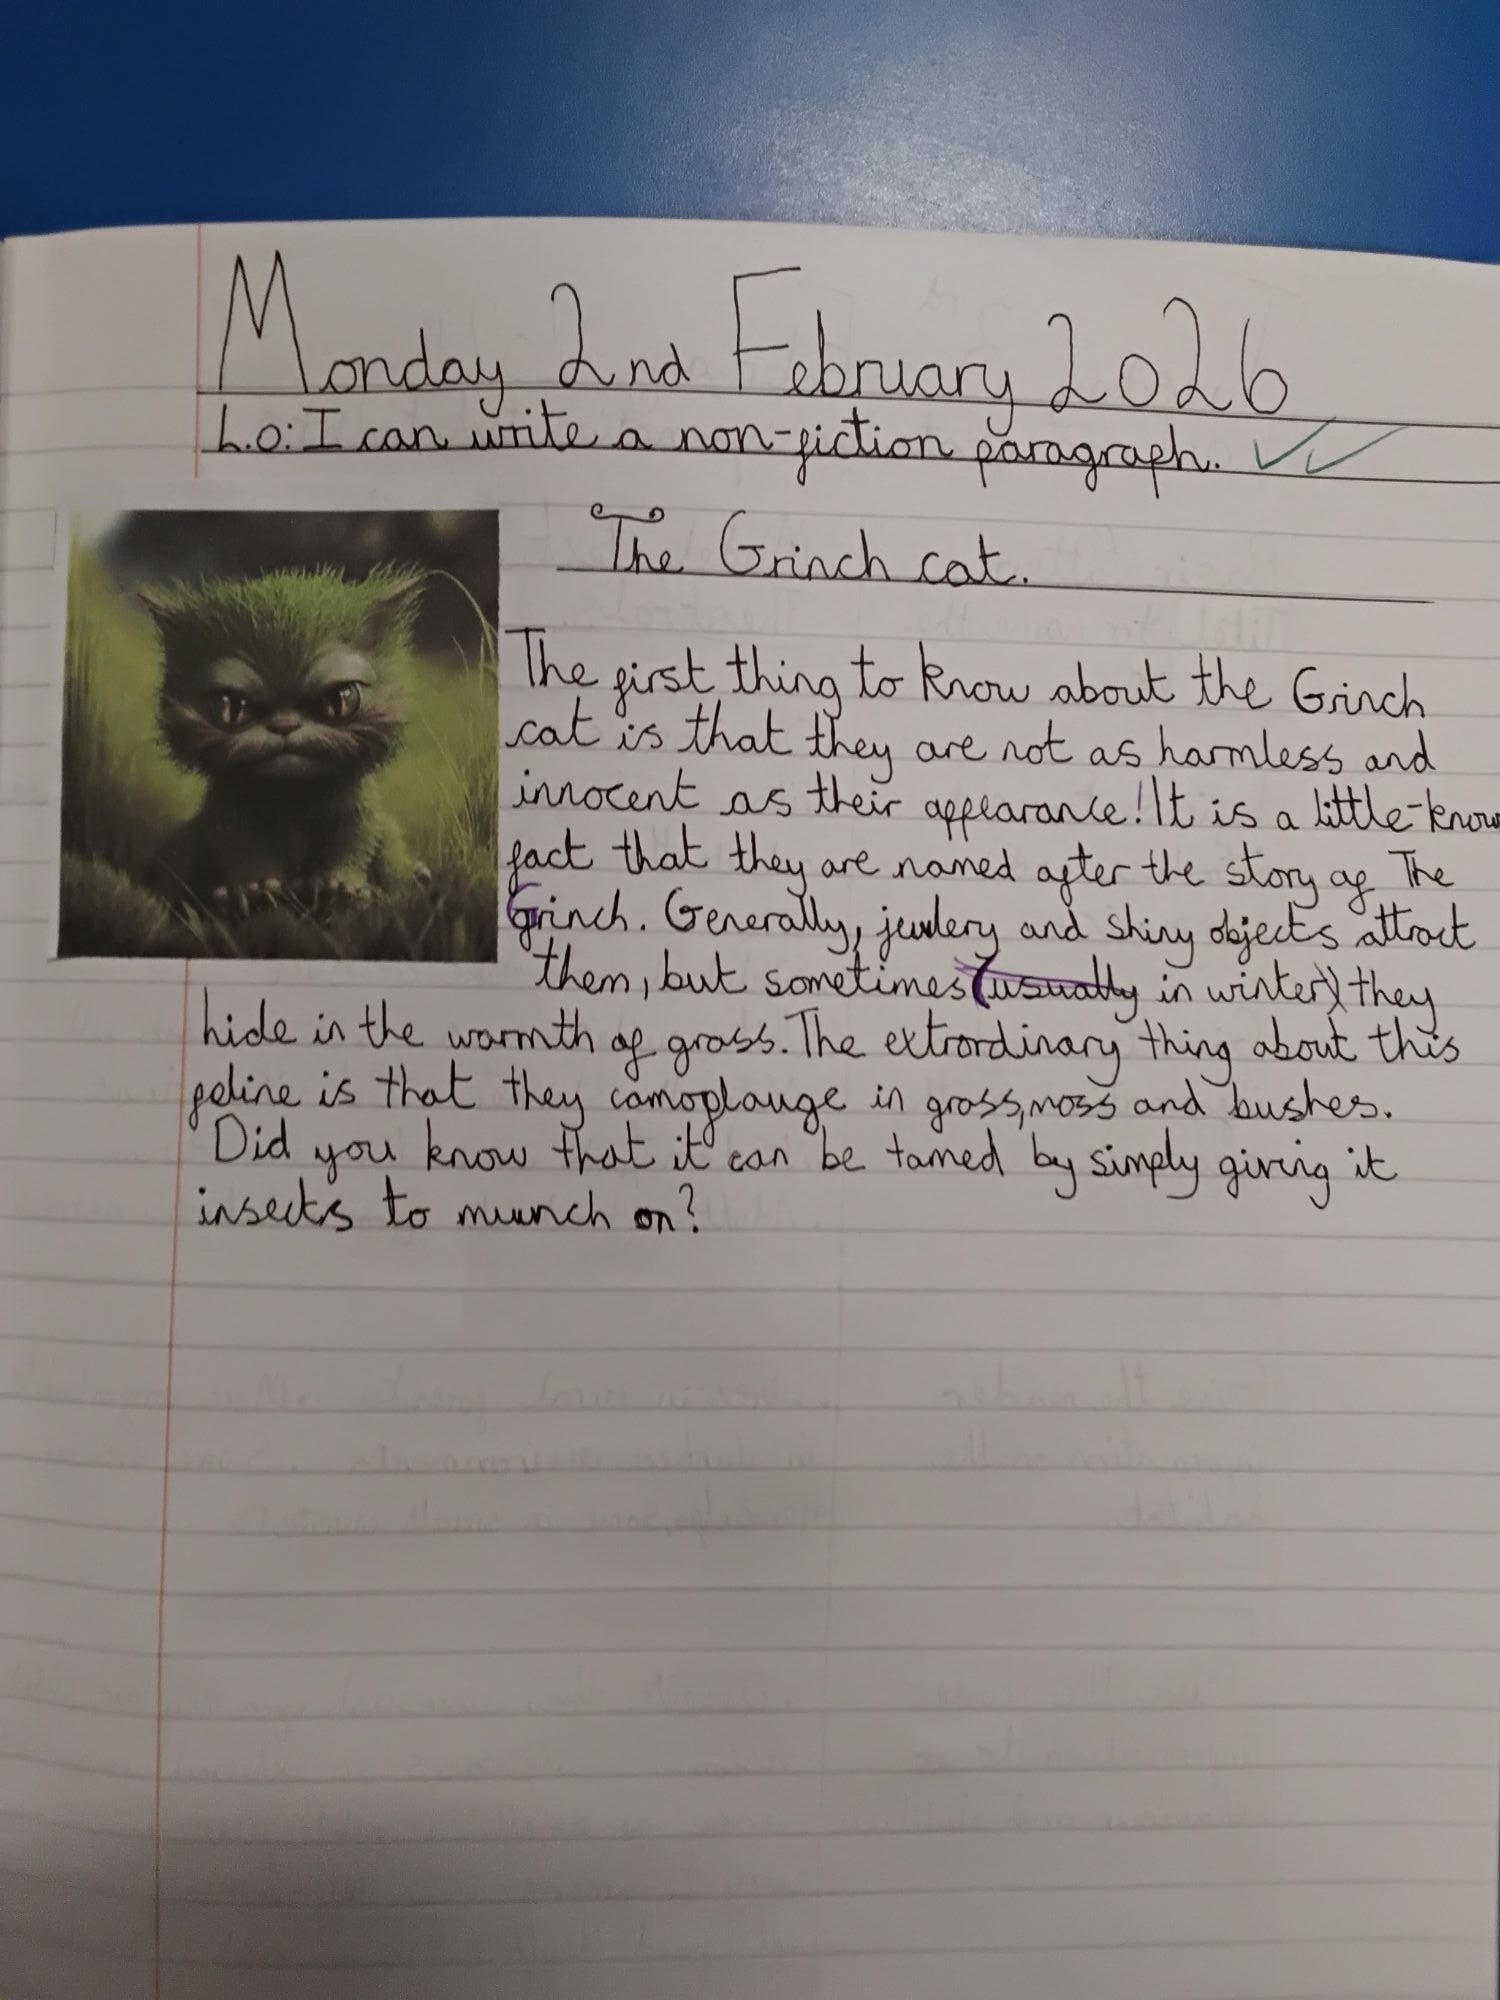 Monday 2nd February 2026
L.O: I can write a non-fiction paragraph.
The Grinch cat.
The first thing to know about the Grinch
cat is that they are not as harmless and
innocent as their appearance! It is a little-know
fact that they are named after the story of The
Grinch. Generally, jewlery and shiny objects attract
them, but sometimes (usually in winter) they
hide in the warmth of grass. The extrordinary thing about this
feline is that they camoplauge in grass, moss and bushes.
Did you know that it can be tamed by simply giving it
insects to munch on?